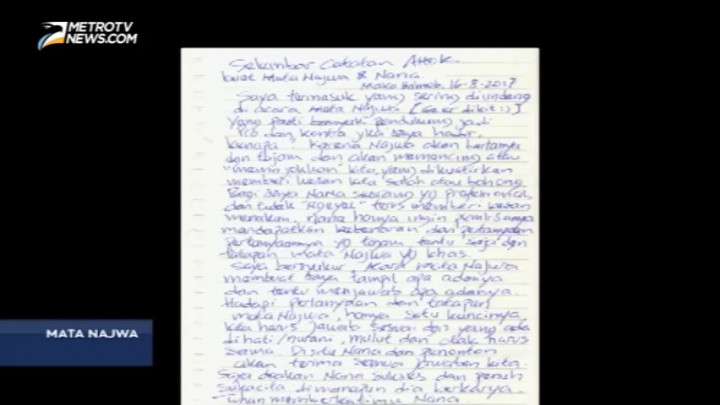 METROTV
NEWS.COM
Selembar Catatan Ahok
buat Mata Najwa & Nana.
Mako Brimob, 16-8-2017
Saya termasuk yang sering diundang
di acara Mata Najwa [Ge er dikit :)]
yang pasti banyak pendukung jadi
pro dan kontra jika saya hadir.
kenapa? Karena Najwa akan bertanya
dan tajam dan akan memancing atau
"memojokkan" kita, yang dikuatirkan
memberi kesan kita salah atau bohong.
Bagi saya Nana seorang yg profesional
dan tidak "ngeyel" terus memberi kesan
menekan. Nana hanya ingin pemirsanya
mendapatkan kebenaran dari pertanyaan
pertanyaannya yg tajam tentu saja dgn
tatapan mata Najwa yg khas.
Saya bersyukur Acara Mata Najwa
membuat saya tampil apa adanya
dan tentu menjawab apa adanya.
Hadapi pertanyaan dan tatapan
mata Najwa, hanya satu kuncinya
kita harus jawab sesuai dan yang ada
dihati/nurani, mulut dan otak harus
sama. Disitu Nana dan penonton
akan terima semua jawaban kita.
Saya doakan Nana sukses dan penuh
sukacita dimanapun dia berkarya.
Tuhan memberkatimu Nana.
MATA NAJWA